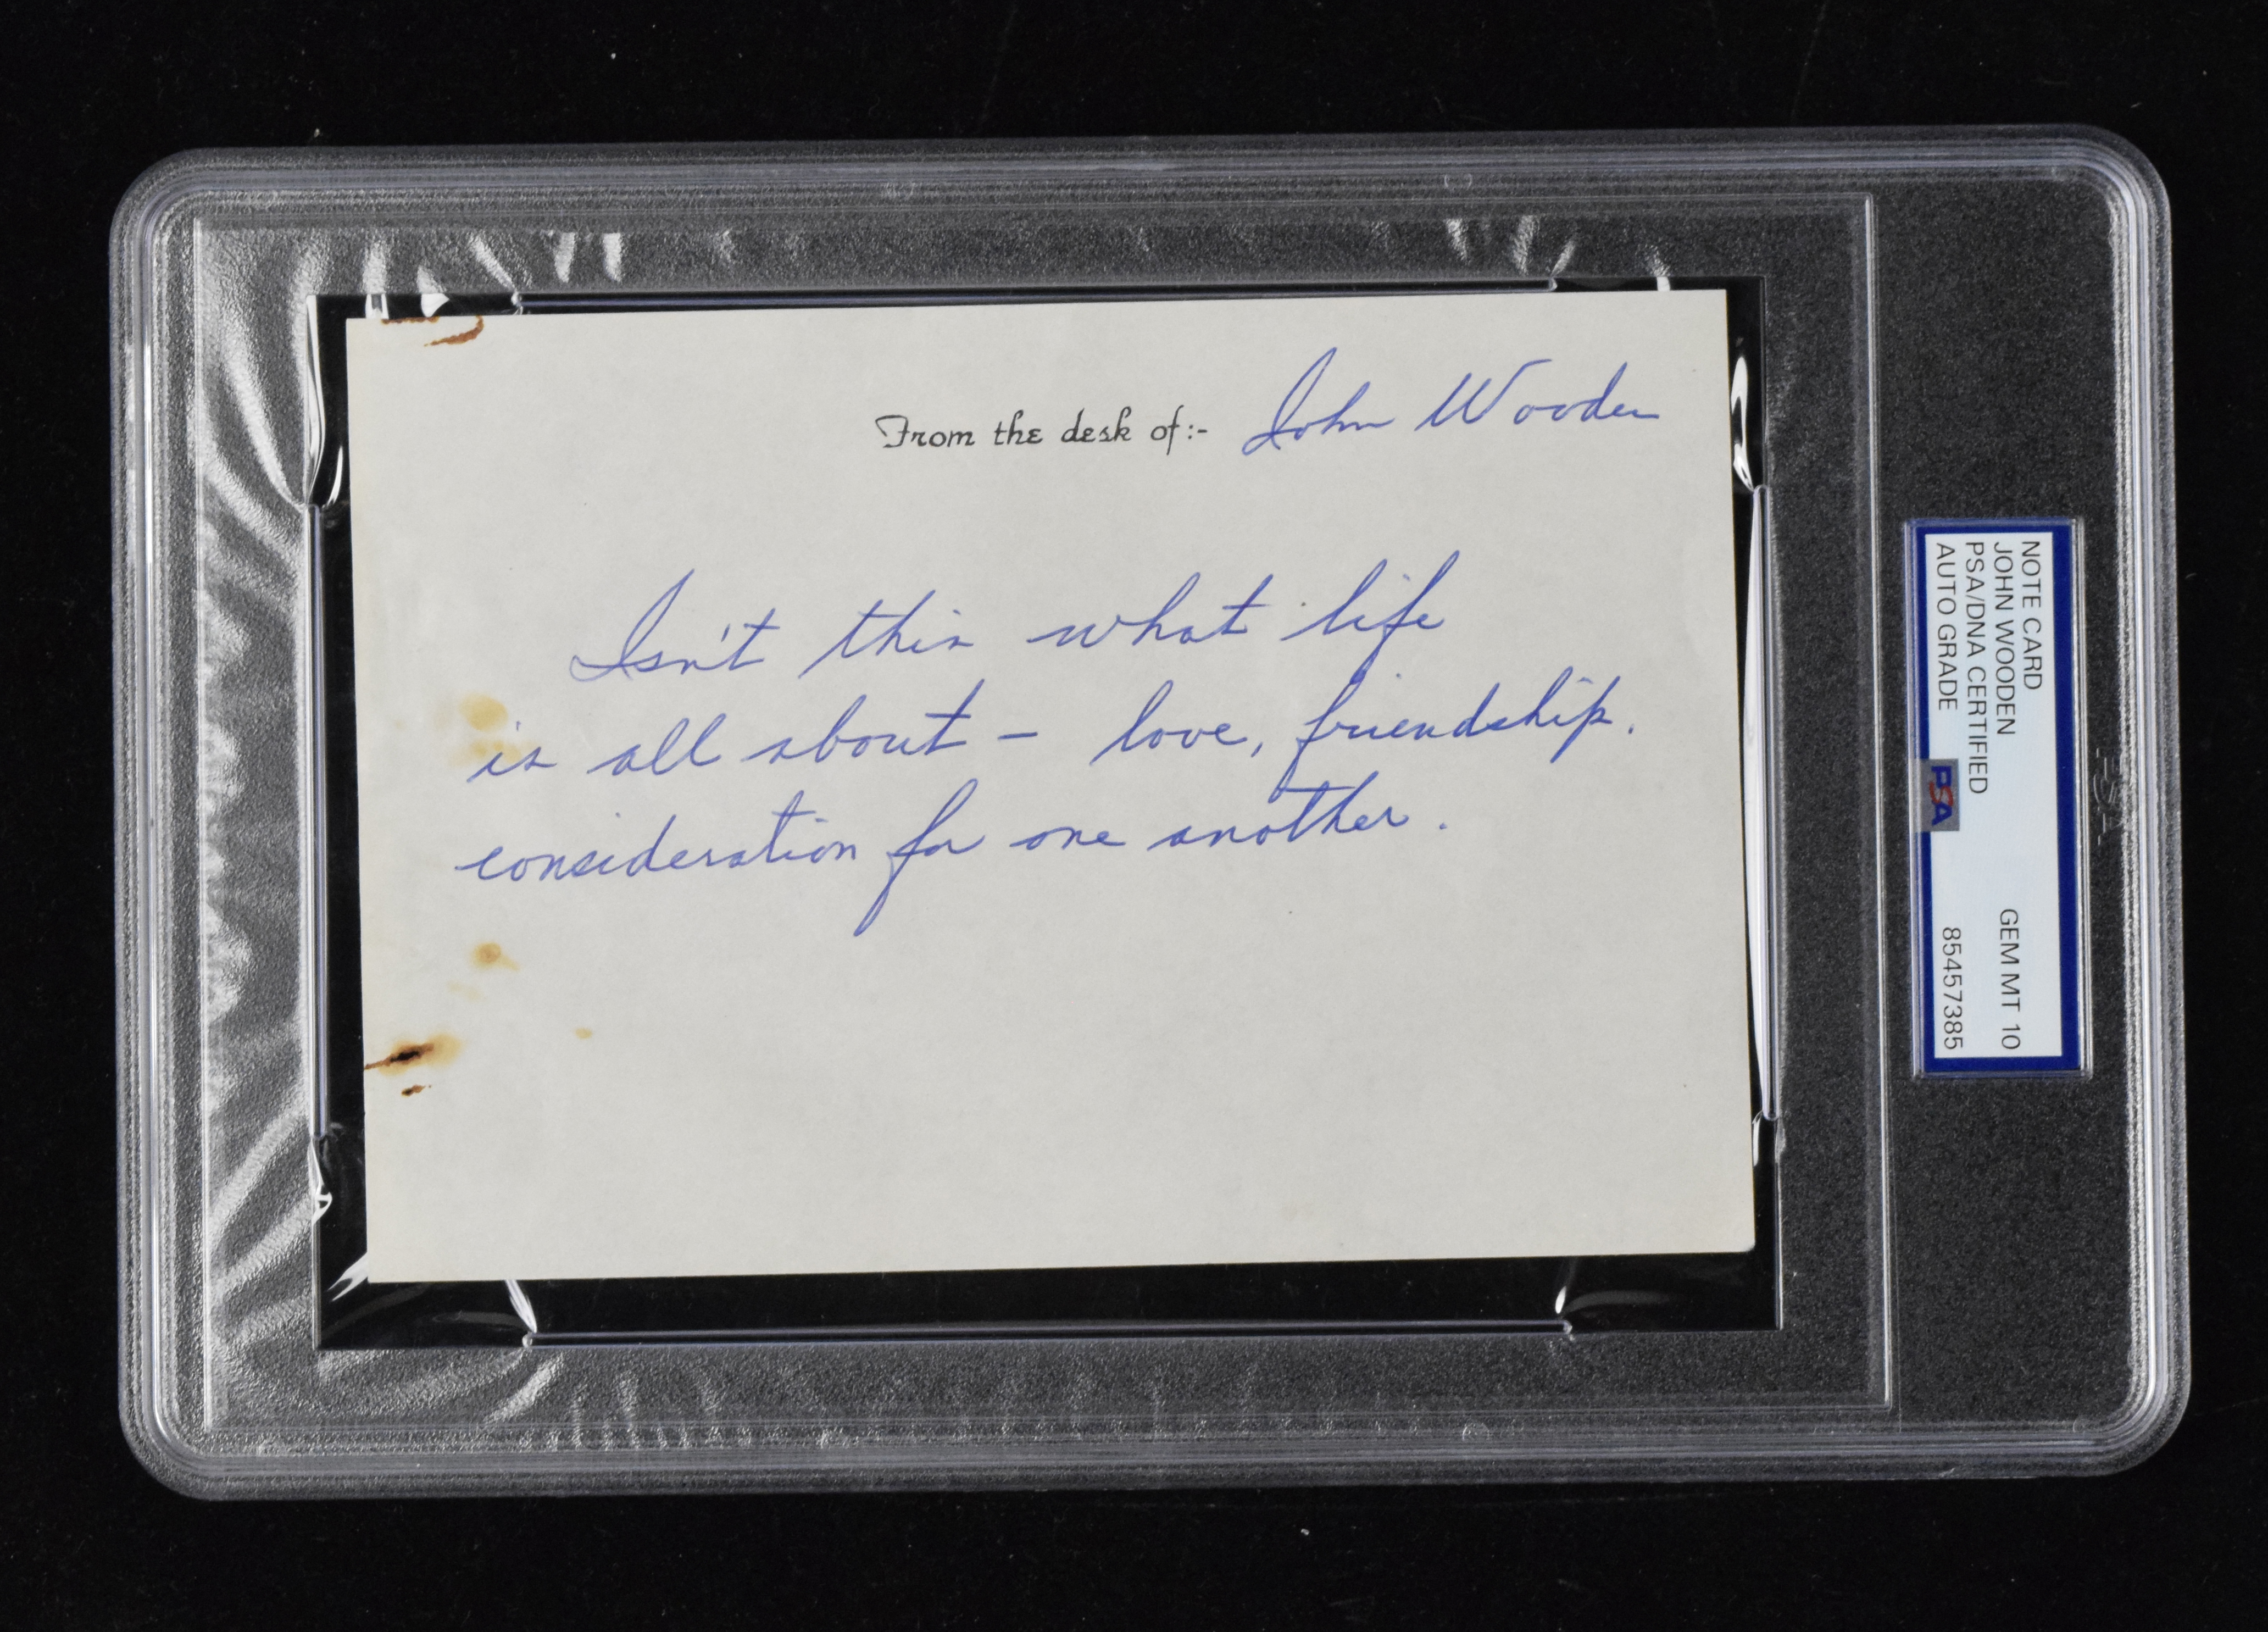 From the desk of:- John Wooden
Isn't this what life
is all about - love, friendship.
consideration for one another.
NOTE CARD
JOHN WOODEN GEM MT 10
PSA/DNA CERTIFIED
AUTO GRADE 85457385
PSA
PSA